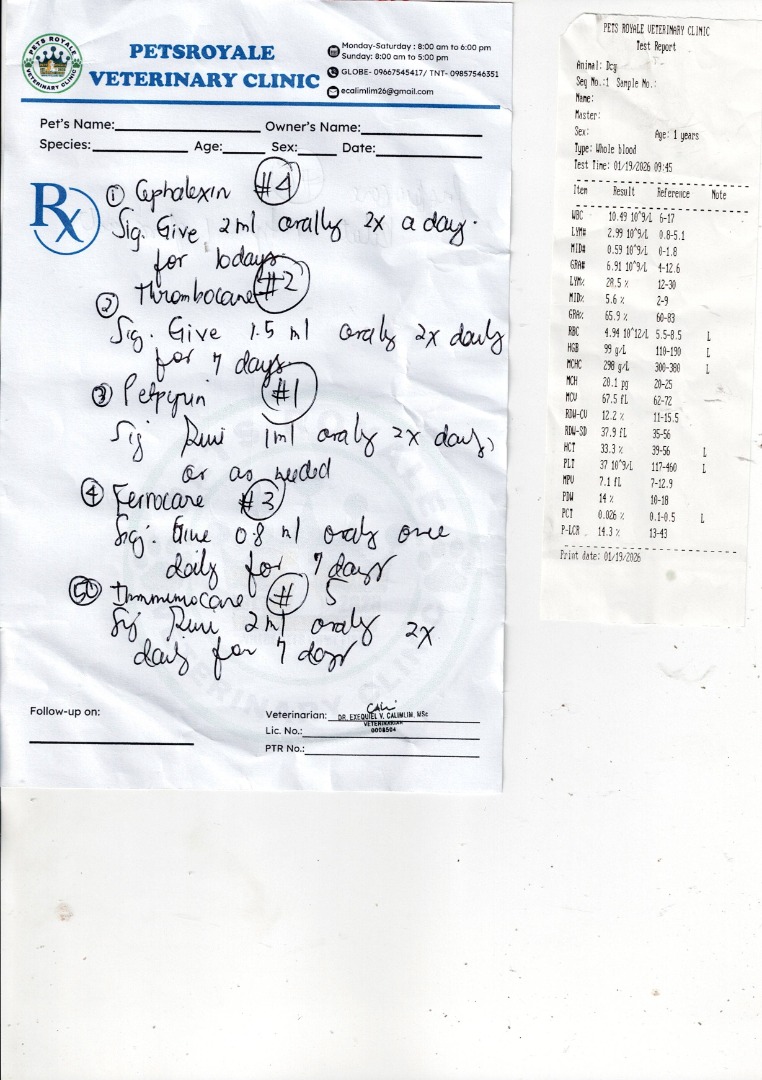 PETSROYALE
VETERINARY CLINIC
PETS ROYALE
VETERINARY CLINIC
Monday-Saturday : 8:00 am to 6:00 pm
Sunday: 8:00 am to 5:00 pm
GLOBE- 09667545417/ TNT- 09857546351
ecalimlim26@gmail.com
Pet's Name: Owner's Name:
Species: Age: Sex: Date:
Rx
① Cephalexin #4
Sig. Give 2 ml orally 2x a day.
for 10 days
② Thrombocare #2
Sig. Give 1.5 ml orally 2x daily
for 7 days.
③ Petpyrin #1
Sig 1ml orally 2x daily,
or as needed
④ Ferrocare #3
Sig: Give 0.8 ml oraly once
daily for 7 days
⑤ Immunocare # 5
Sig 2ml orally 2x
daily for 7 days
Follow-up on:
Veterinarian: DR. EXEQUIEL V. CALIMLIM, MSc
VETERINARIAN
Lic. No.: 0008504
PTR No.:
PETS ROYALE VETERINARY CLINIC
Test Report
Animal: Dog
Seq No.:1 Sample No.:
Name:
Master:
Sex: Age: 1 years
Type: Whole blood
Test Time: 01/19/2026 09:45
Item Result Reference Note
WBC 10.49 10^9/L 6-17
LYM# 2.99 10^9/L 0.8-5.1
MID# 0.59 10^9/L 0-1.8
GRA# 6.91 10^9/L 4-12.6
LYM% 28.5 % 12-30
MID% 5.6 % 2-9
GRA% 65.9 % 60-83
RBC 4.94 10^12/L 5.5-8.5 L
HGB 99 g/L 110-190 L
MCHC 298 g/L 300-380 L
MCH 20.1 pg 20-25
MCV 67.5 fL 62-72
RDW-CV 12.2 % 11-15.5
RDW-SD 37.9 fL 35-56
HCT 33.3 % 39-56 L
PLT 37 10^9/L 117-460 L
MPV 7.1 fL 7-12.9
PDW 14 % 10-18
PCT 0.026 % 0.1-0.5 L
P-LCR 14.3 % 13-43
Print date: 01/19/2026